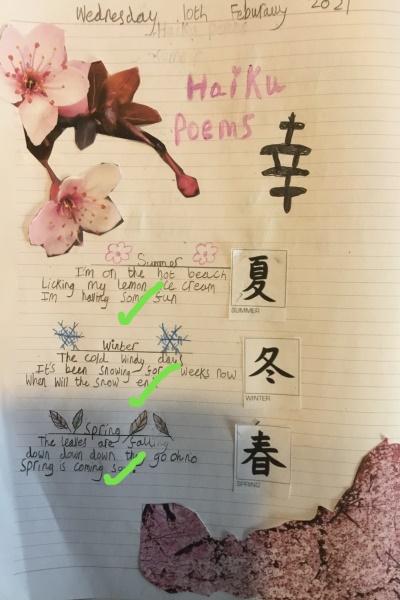 Wednesday 10th Feburary 2021
Haiku poems
HaiKu
Poems
幸
Summer
I'm on the hot beach
Licking my lemon ice cream
Im having some fun
夏
SUMMER
Winter
The cold windy days
It's been snowing for weeks now
When will the snow end
冬
WINTER
Spring
The leaves are falling
down down down they go oh no
Spring is coming soon
春
SPRING